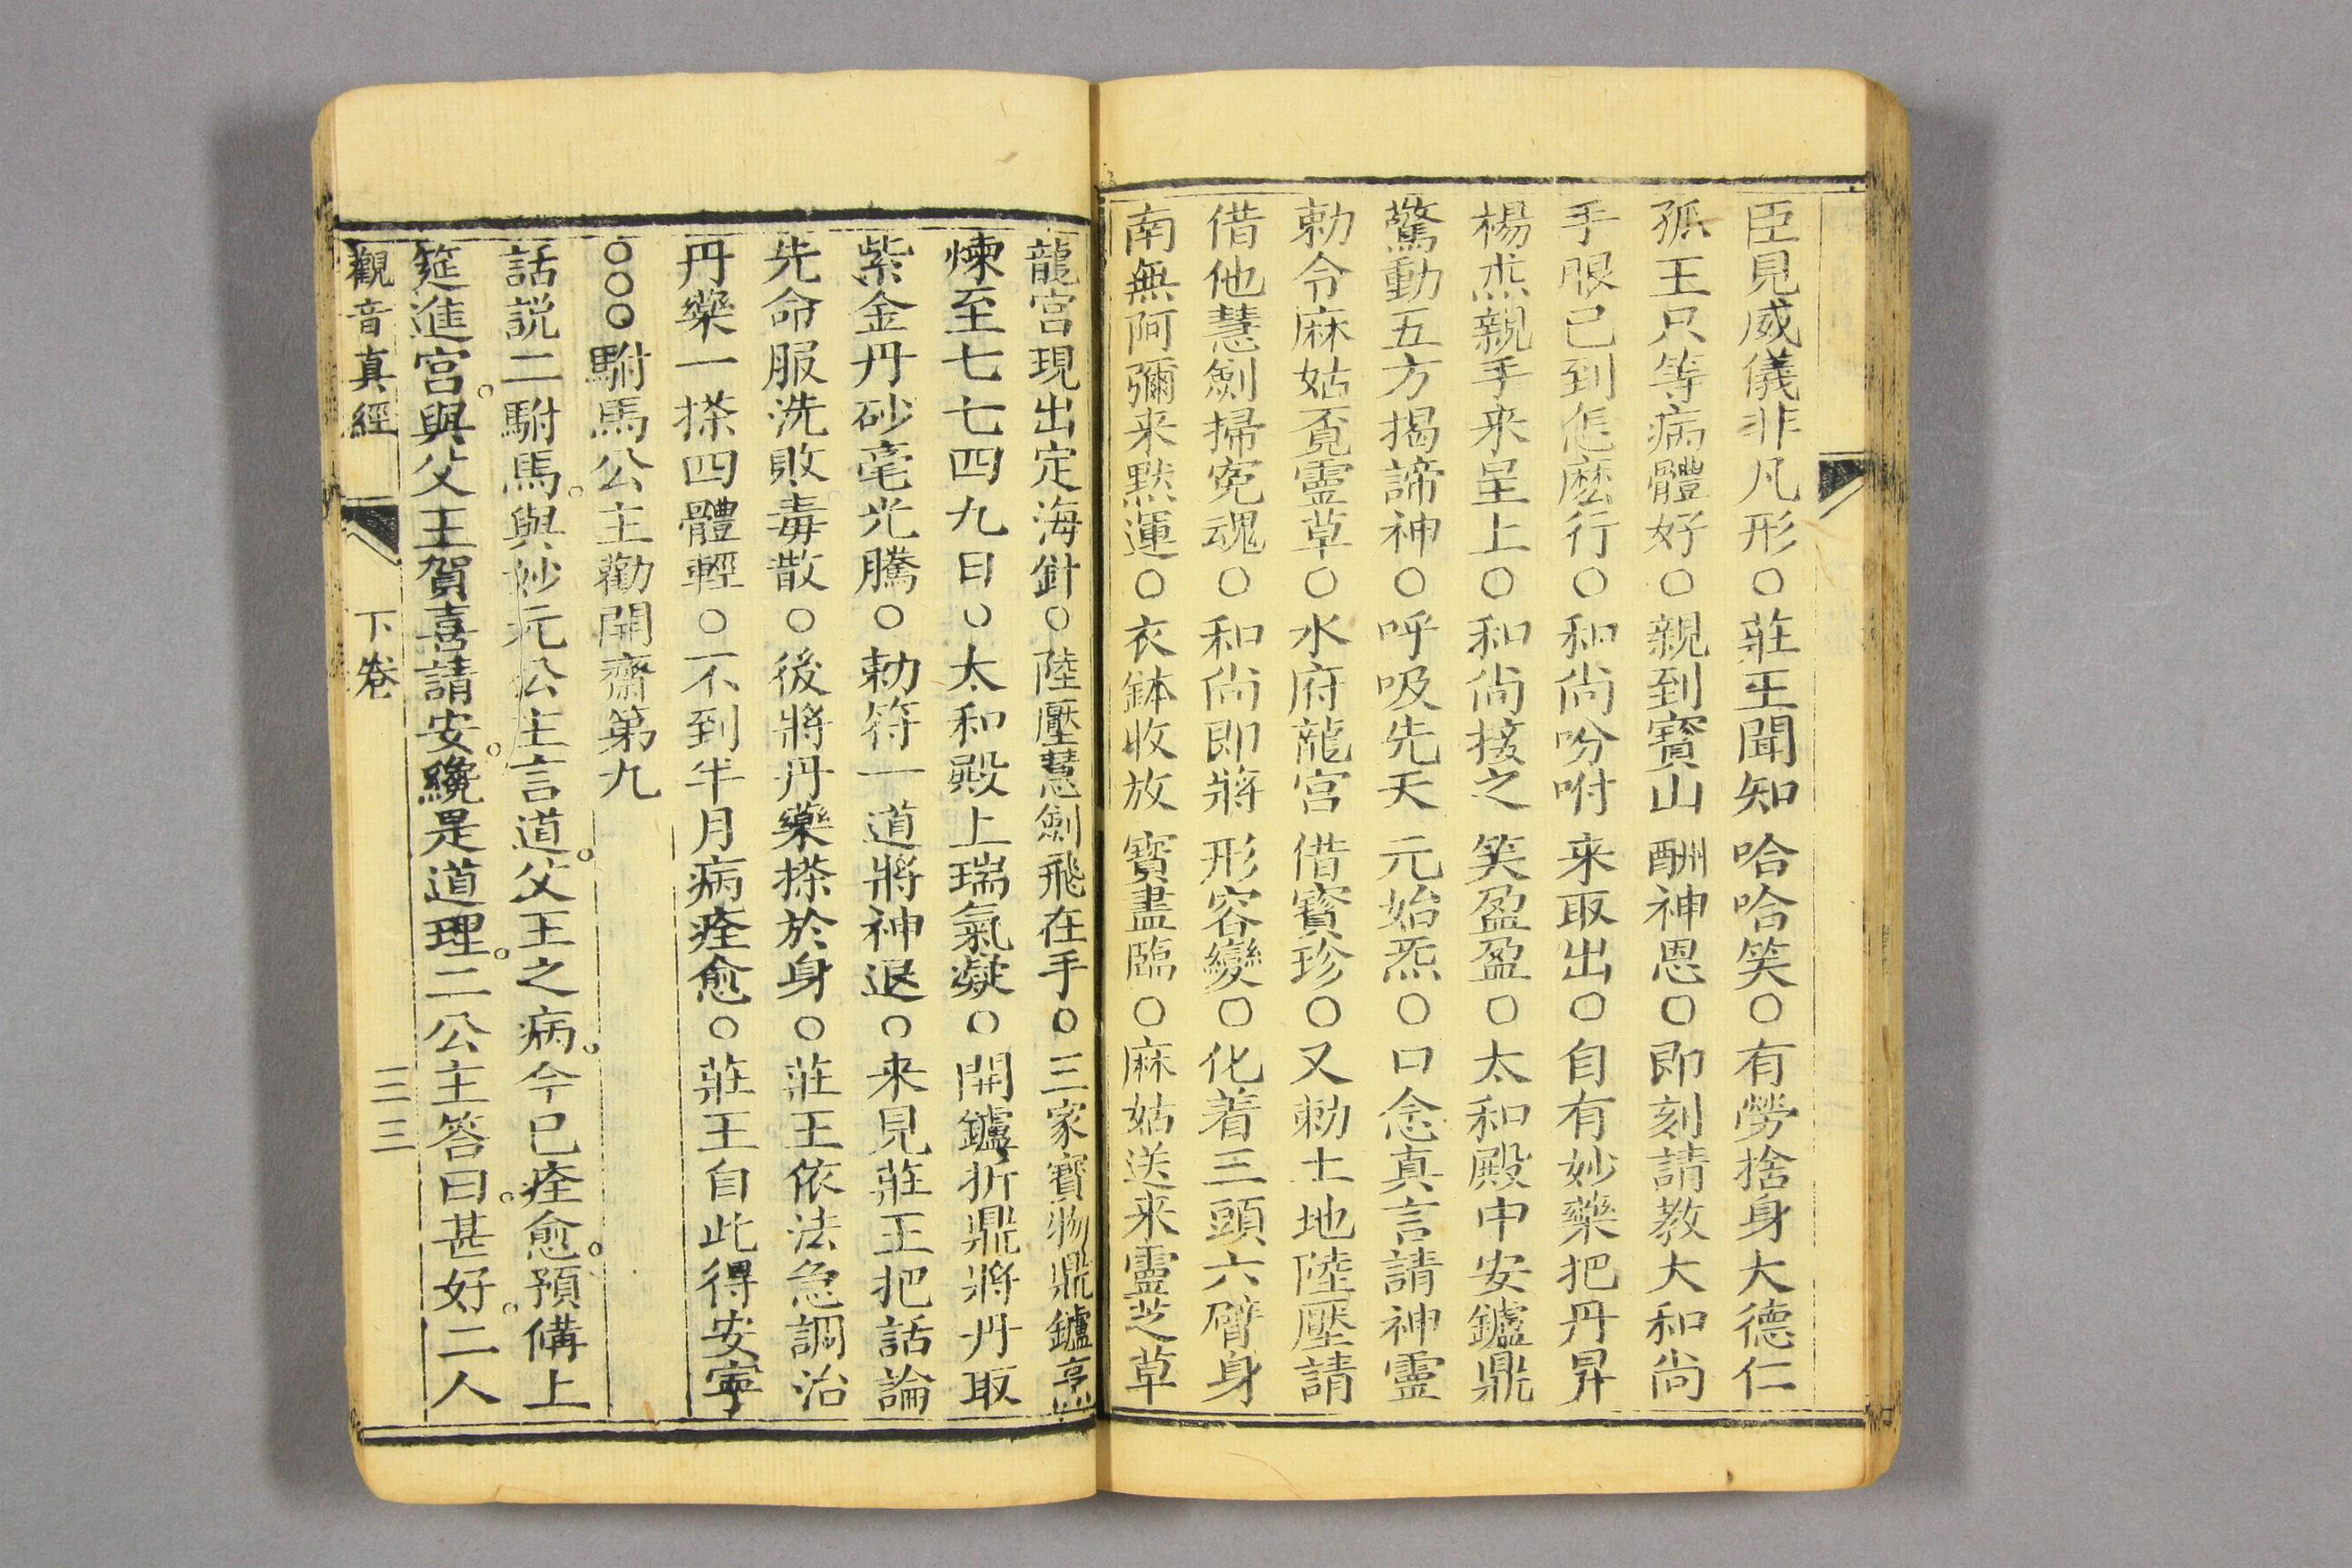 臣見威儀非凡形○莊王聞知哈哈笑○有勞捨身大德仁
孤王只等病體好○親到寶山酬神恩○即刻請教大和尚
手眼已到怎麽行○和尚吩咐来取出○自有妙藥把丹昇
楊杰親手来呈上○和尚接之笑盈盈○太和殿中安鑪鼎
驚動五方揭諦神○呼吸先天元始炁○口念真言請神靈
勅令麻姑覔靈草○水府龍宮借寶珍○又勅土地陸壓請
借他慧劍掃寃魂○和尚即將形容變○化着三頭六臂身
南無阿彌来默運○衣鉢收放寶盡臨○麻姑送来靈芝草
龍宮現出定海針○陸壓慧劍飛在手○三家寶物鼎鑪烹
煉至七七四九日○太和殿上瑞氣凝○開鑪折鼎將丹取
紫金丹砂毫光騰○勅符一道將神退○来見莊王把話論
先命服洗敗毒散○後將丹藥搽於身○莊王依法急調治
丹藥一搽四體輕○不到半月病痊愈○莊王自此得安寧
○○○駙馬公主勸開齋第九
話説二駙馬。與妙元公主言道。父王之病。今已痊愈。預俻上
筵進宮。與父王賀喜請安。纔是道理。二公主答曰。甚好。二人
觀音真經 下卷 三三